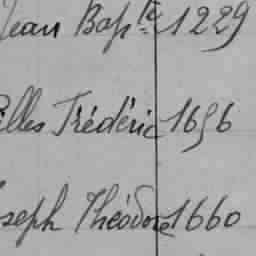 Jean Bapte 1229
Gilles Frédéric 1696
Joseph Théodore 1660